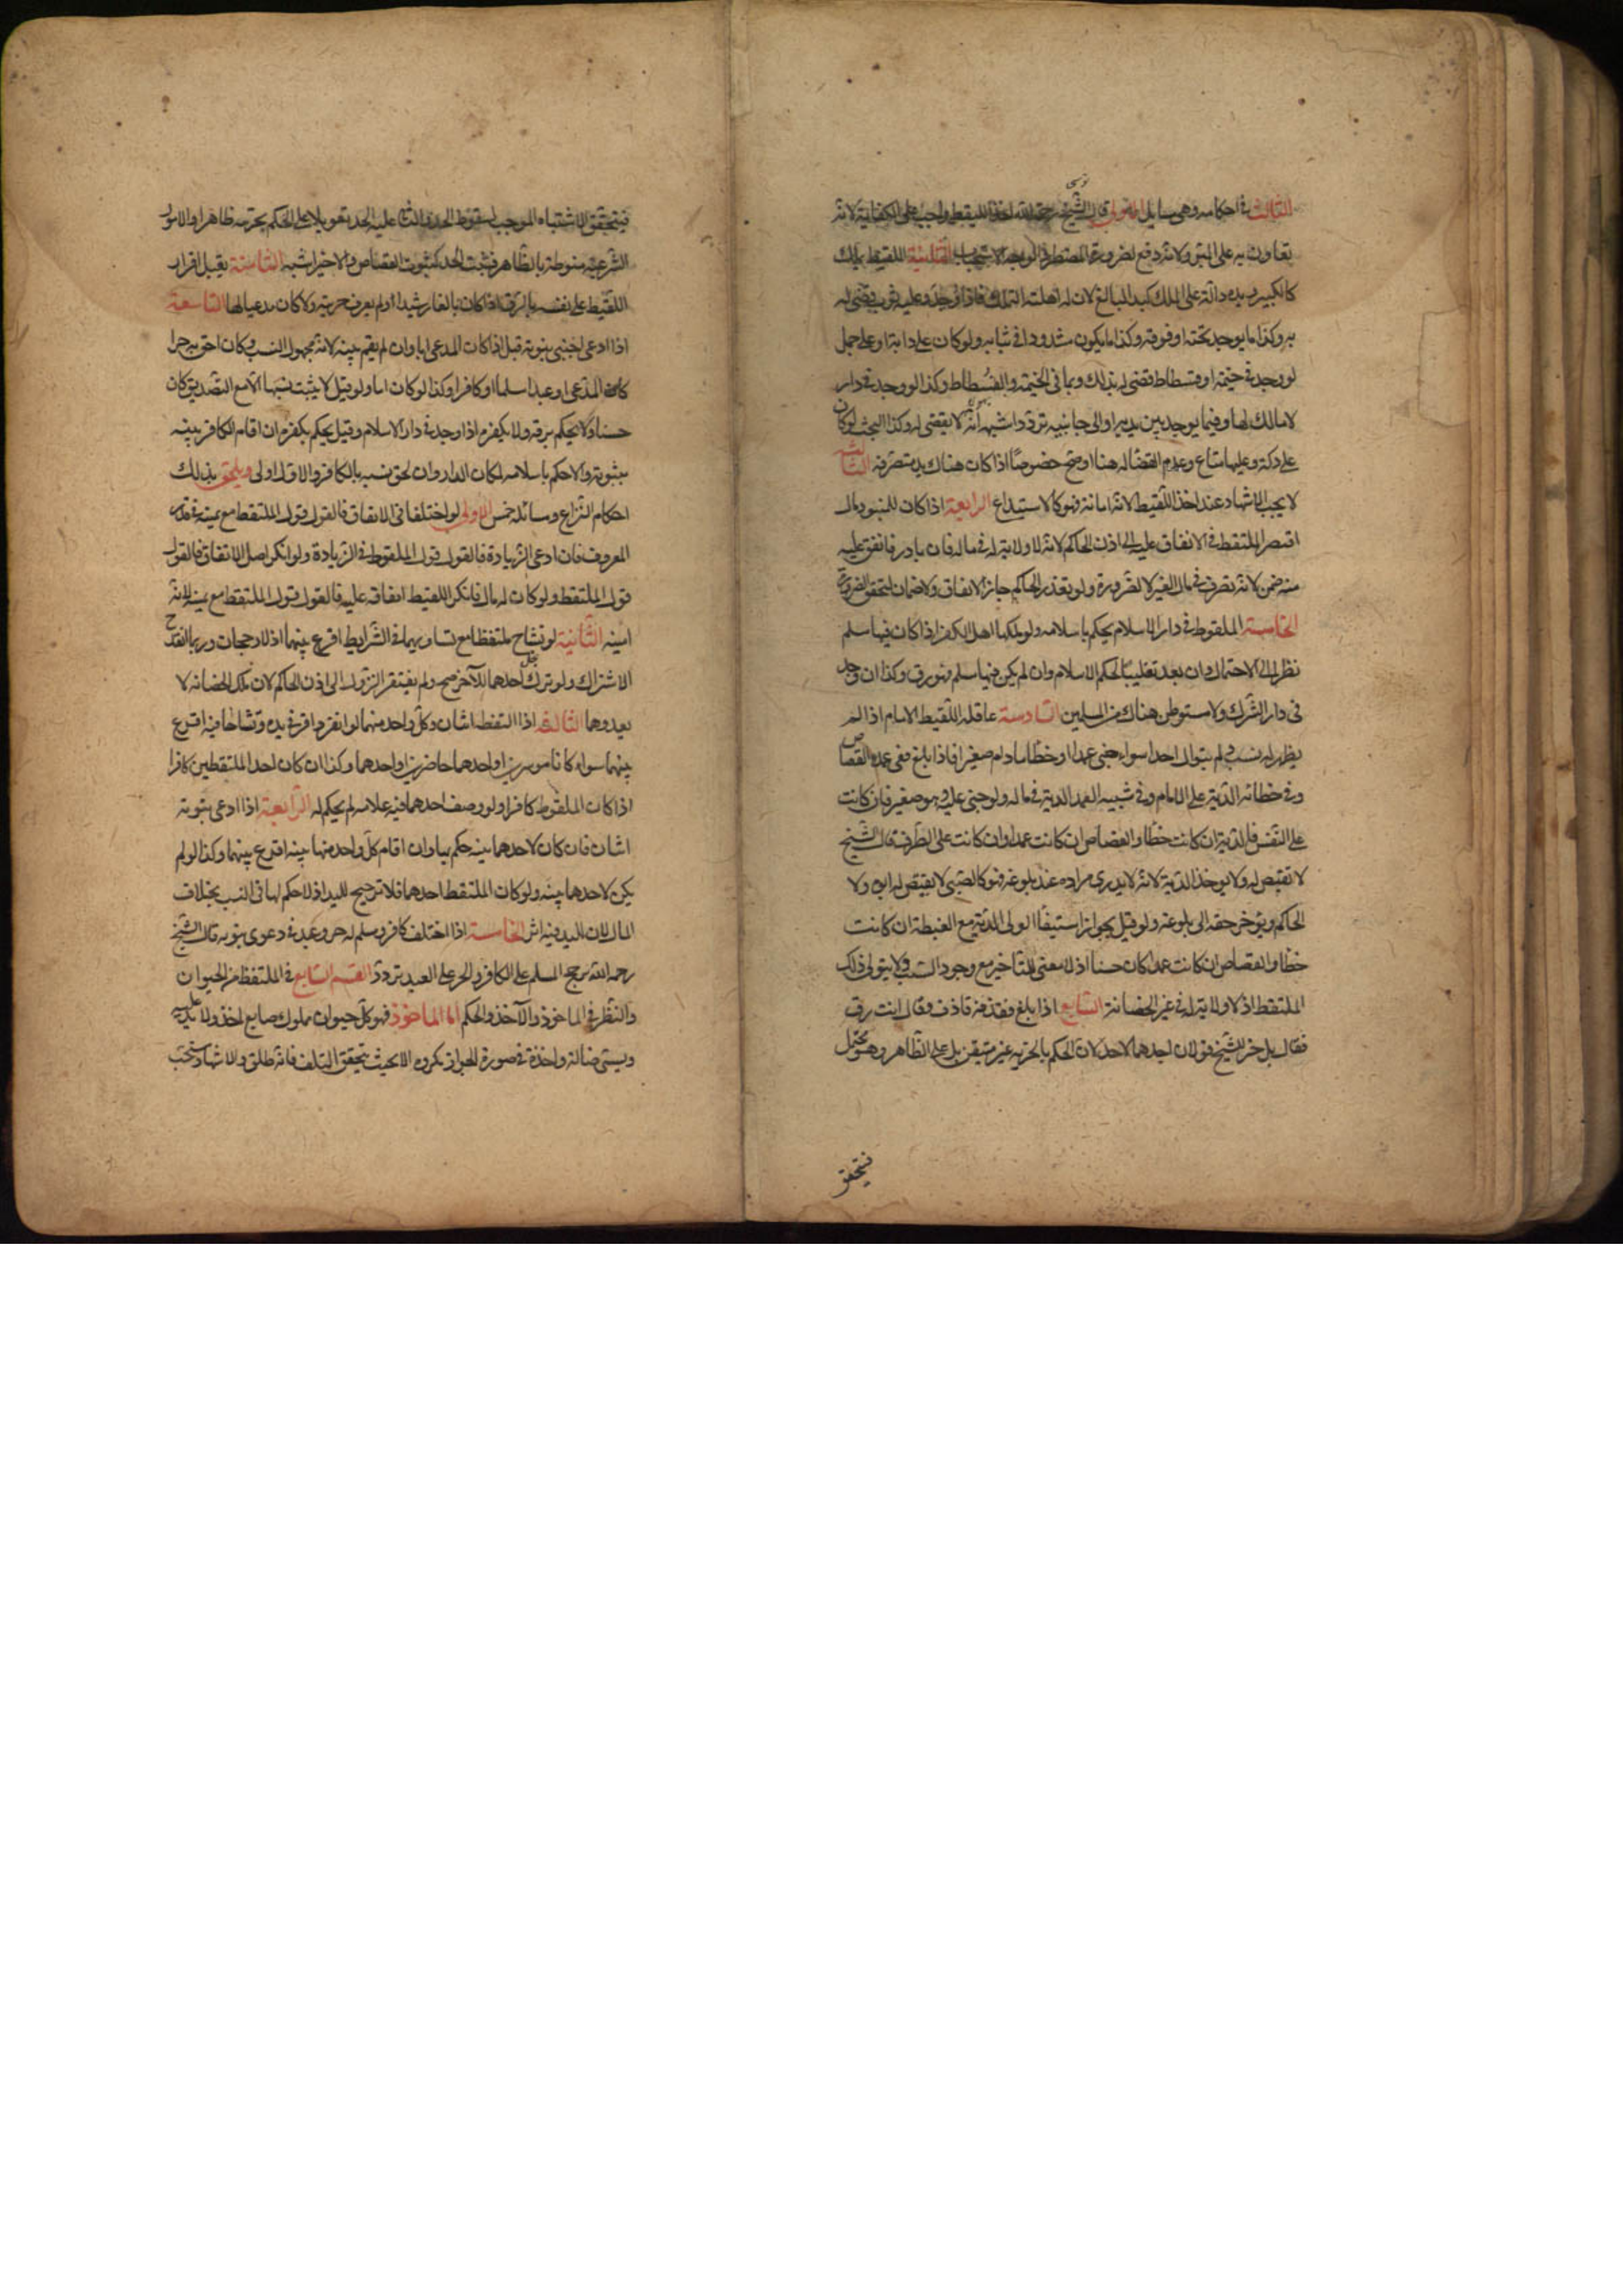 الثالث في احكامه وهي مسايل الاولى قال الشيخ رحمه الله اخذ اللقيط واجب على الكفاية لانه
تعاون به على البر ولانه دفع لضرورة المضطر والوجه الاستحباب الثانية اللقيط يملك
كالكبير ويده دالة على الملك كيد البالغ لان له اهلية التملك فاذا وجد وعليه ثوب قضى له
به وكذا ما يوجد تحته او فوقه وكذا ما يكون مشدودا في ثيابه ولو كان على دابة او على جمل
لو وجد في خيمة او فسطاط قضى له بذلك وبما في الخيمة والفسطاط وكذا لو وجد في دار
لا مالك لها وفيما يوجد بين يديه او الى جانبيه تردد اشبهه انه لا يقضى له وكذا البحث لو كان
على دكة وعليها متاع وعدم القضا له هنا اوضح خصوصا اذا كان هناك يد متصرفة الثالثة
لا يجب الاشهاد عند اخذ اللقيط لانه امانة فهو كالاستيداع الرابعة اذا كان للمنبوذ مال
افتقر الملتقط في الانفاق عليه الى اذن الحاكم لانه لا ولاية له في ماله فان بادر فانفق عليه
منه ضمن لانه تصرف في مال الغير لا لضرورة ولو تعذر الحاكم جاز الانفاق ولا ضمان لتحقق الضرورة
الخامسة الملقوط في دار الاسلام يحكم باسلامه ولو ملكها اهل الكفر اذا كان فيها مسلم
نظرا الى الاحتمال وان بعد تغليبا لحكم الاسلام وان لم يكن فيها مسلم فهو رق وكذا ان وجد
في دار الشرك ولا مستوطن هناك من المسلمين السادسة عاقلة اللقيط الامام اذا لم
يظهر له نسب ولم يتوال احدا سواء جنى عمدا او خطأ ما دام صغيرا فاذا بلغ ففي عمده القصاص
وفي خطائه الدية على الامام وفي شبيه العمد الدية في ماله ولو جنى عليه وهو صغير فان كانت
على النفس فالدية ان كانت خطأ والقصاص ان كانت عمدا وان كانت على الطرف قال الشيخ
لا تقتص له ولا يوخذ الدية لانه لا يدرى مراده عند بلوغه فهو كالصبي لا يقتص له ابوه ولا
الحاكم ويؤخر حقه الى بلوغه ولو قيل بجواز استيفا الولي الدية مع الغبطة ان كانت
خطأ والقصاص ان كانت عمدا كان حسنا اذ لا معنى للتاخير مع وجود السبب ولا يتولى ذلك
الملتقط اذ لا ولاية له في غير الحضانة السابع اذا بلغ فقذفه قاذف وقال انت رق
فقال بل حر للشيخ قولان احدهما لا حد لان الحكم بالحرية غير متيقن بل على الظاهر وهو محتمل
فيتحقق
فيتحقق الاشتباه الموجب لسقوط الحد والثاني عليه الحد تعويلا على الحكم بحريته ظاهرا والامور
الشرعية منوطة بالظاهر فيثبت الحد كثبوت القصاص والاخير اشبه الثامنة يقبل اقرار
اللقيط على نفسه بالرق اذا كان بالغا رشيدا ولم يعرف حريته ولا كان مدعيا لها التاسعة
اذا ادعى اجنبي بنوته قبل اذا كان المدعي ابا وان لم يقم بينة لانه مجهول النسب وكان احق به حرا
كان المدعي او عبدا مسلما او كافرا وكذا لو كان اما ولو قيل لا يثبت نسبها الا مع التصديق كان
حسنا ولا يحكم برقه ولا بكفره اذا وجد في دار الاسلام وقيل يحكم بكفره ان اقام الكافر بينه
ببنوته والا حكم باسلامه لمكان الدار وان لحق نسبه بالكافر والاول اولى ويلحق بذلك
احكام النزاع ومسائله خمس الاولى لو اختلفا في الانفاق فالقول قول الملتقط مع يمينه في قدر
المعروف فان ادعى الزيادة فالقول قول الملقوط في الزيادة ولو انكر اصل الانفاق فالقول
قول الملتقط ولو كان له مال فانكر اللقيط انفاقه عليه فالقول قول الملتقط مع يمينه لانه
امينه الثانية لو تشاح ملتقطان مع تساويهما في الشرايط اقرع بينهما اذ لا رجحان وربما انقدح
الاشتراك ولو ترك احدهما للآخر صح ولم يفتقر النزول الى اذن الحاكم لان ملك الحضانة لا
يعدوهما الثالثة اذا التقطه اثنان وكل واحد منهما لو انفرد اقر في يده وتشاحا فيه اقرع
بينهما سواء كانا موسرين او احدهما حاضرين او احدهما وكذا ان كان احد الملتقطين كافرا
اذا كان الملقوط كافرا ولو وصف احدهما فيه علامة لم يحكم له الرابعة اذا ادعى بنوته
اثنان فان كان لاحدهما بينه حكم بها وان اقام كل واحد منهما بينه اقرع بينهما وكذا لو لم
يكن لاحدهما بينه ولو كان الملتقط احدهما فلا ترجيح لليد اذ لا حكم لها في النسب بخلاف
المال لان لليد فيه اثر الخامسة اذا اختلف كافر ومسلم او حر وعبد في دعوى بنوته قال الشيخ
رحمه الله يرجح المسلم على الكافر والحر على العبد وفيه تردد القسم السابع في الملتقط من الحيوان
والنظر في الماخوذ والآخذ والحكم اما الماخوذ فهو كل حيوان مملوك ضايع اخذ ولا يد عليه
ويسمى ضالة واخذه في صورة الجواز مكروه الا بحيث يتحقق التلف فانه طلق والاشهاد مستحب